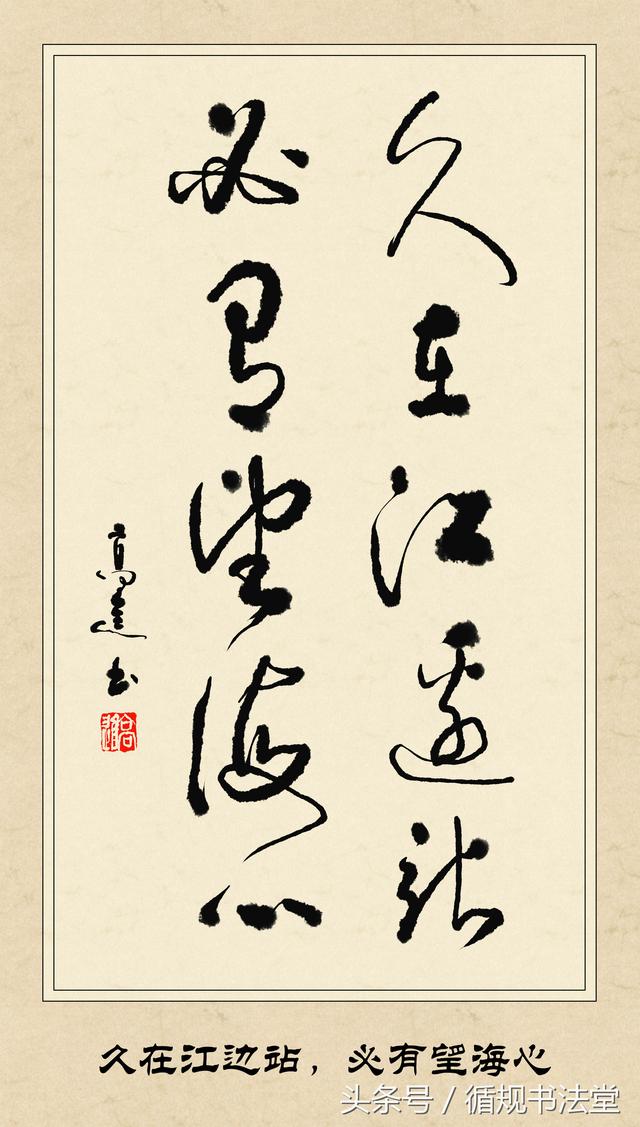 久在江边站
必有望海心
高進书
久在江边站，必有望海心
头条号 / 循规书法堂